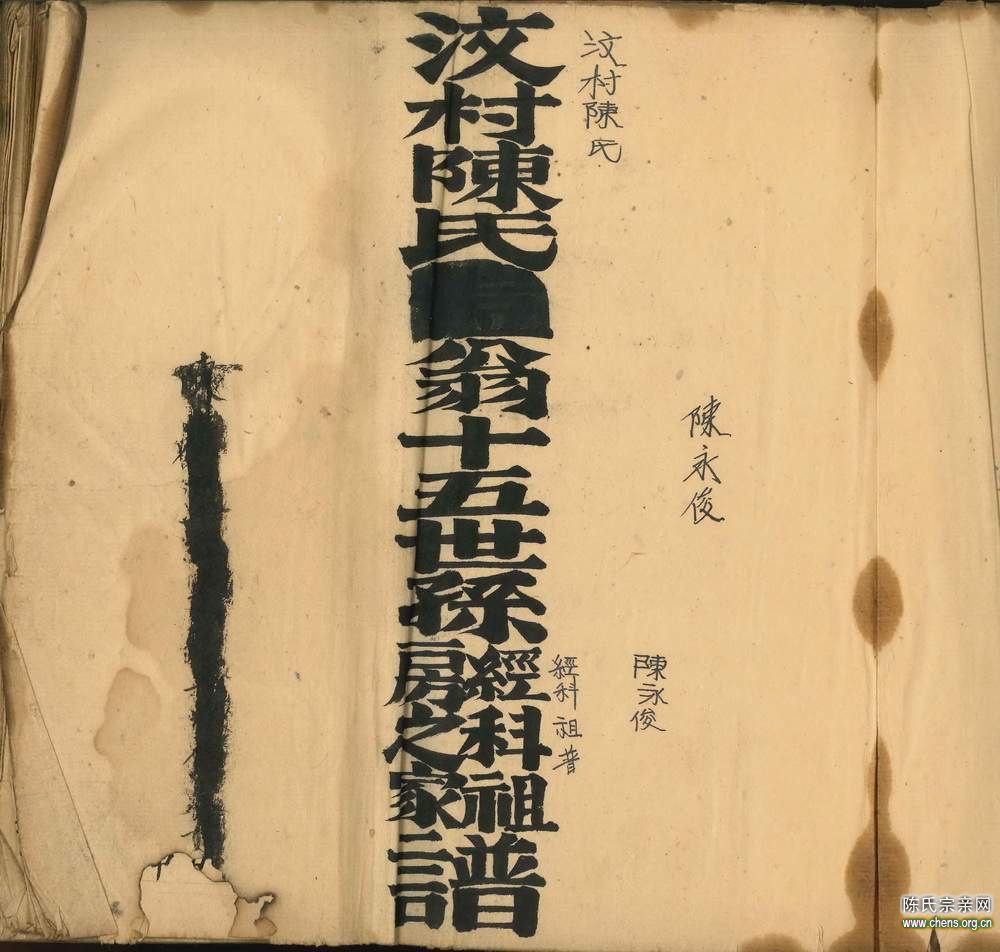 陳永俊
陳永俊
汶村陳氏
經科祖普
汶村陳氏翁十五世孫經科祖房之家譜
陈氏宗亲网
www.chens.org.cn